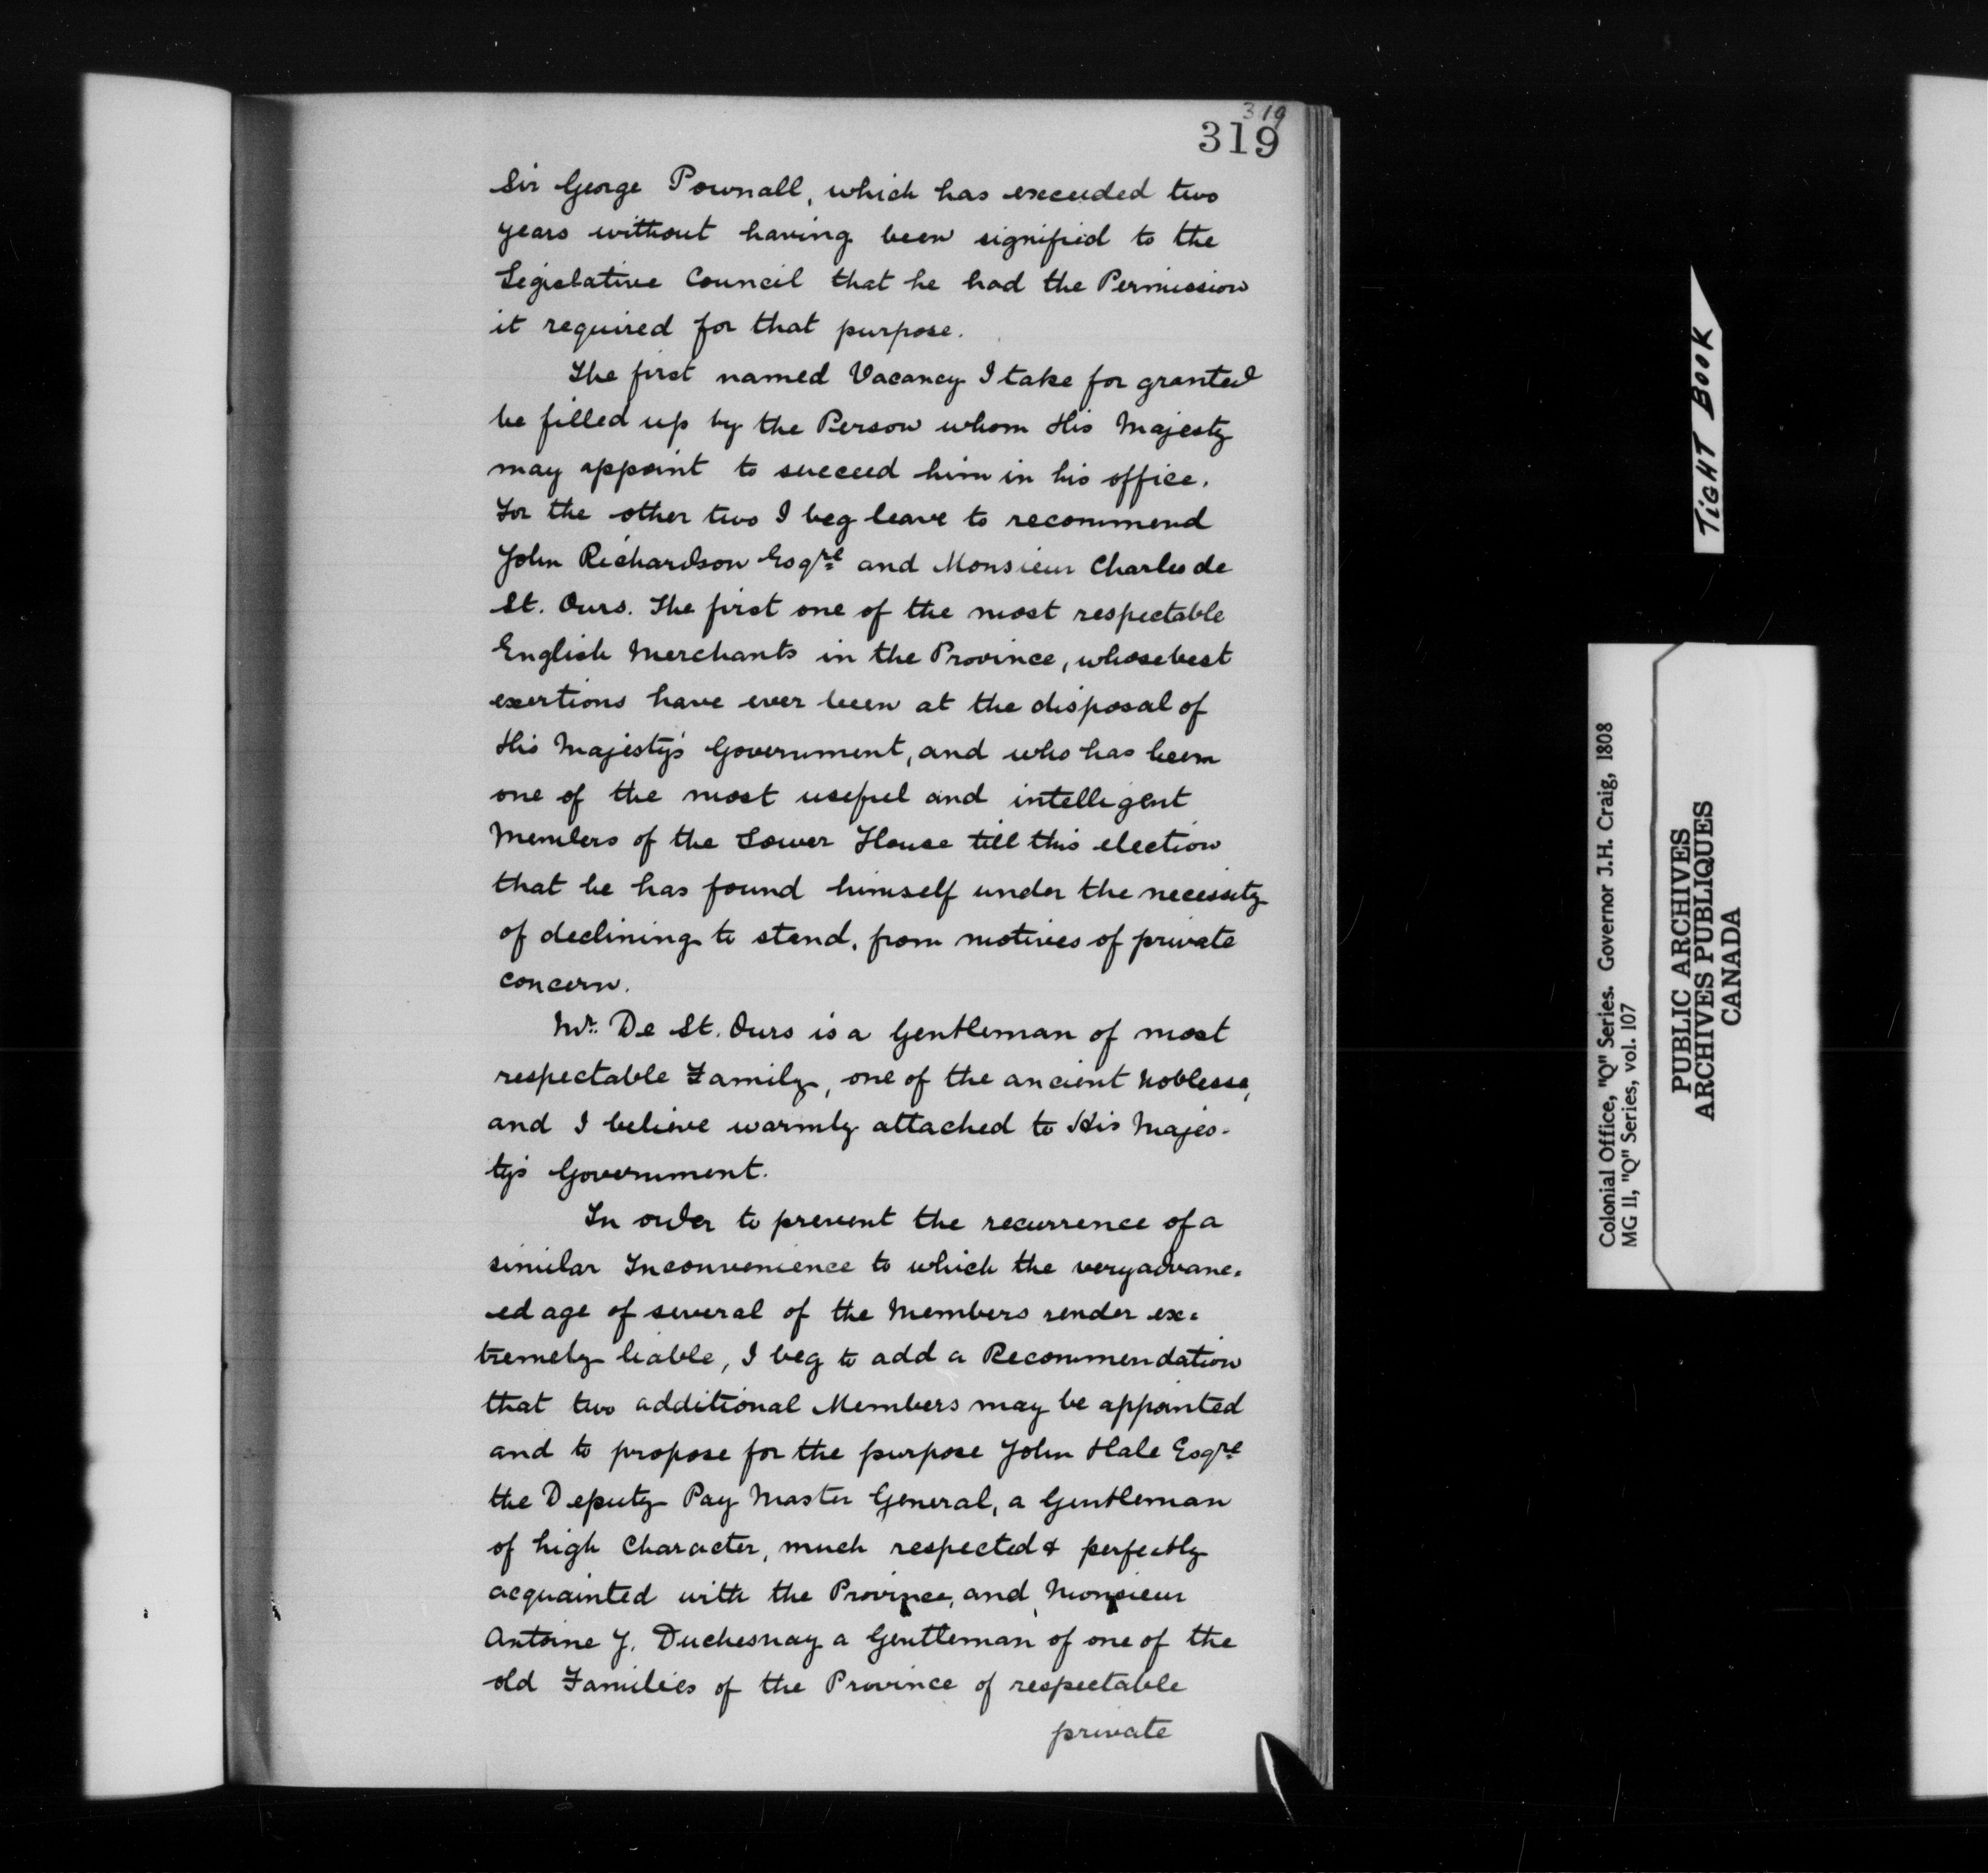 319
319
Sir George Pownall, which has exceeded two
years without having been signified to the
Legislative Council that he had the Permission
it required for that purpose.
The first named Vacancy I take for granted
be filled up by the Person whom His Majesty
may appoint to succeed him in his office.
For the other two I beg leave to recommend
John Richardson Esqre and Monsieur Charles de
St. Ours. The first one of the most respectable
English Merchants in the Province, whose best
exertions have ever been at the disposal of
His Majesty's Government, and who has been
one of the most useful and intelligent
Members of the Lower House till this election
that he has found himself under the necessity
of declining to stand, from motives of private
concern.
Mr. De St. Ours is a Gentleman of most
respectable Family, one of the ancient Noblesse,
and I believe warmly attached to His Majes-
ty's Government.
In order to prevent the recurrence of a
similar Inconvenience to which the very advanc=
ed age of several of the Members render ex=
tremely liable, I beg to add a Recommendation
that two additional Members may be appointed
and to propose for the purpose John Hale Esqre
the Deputy Pay Master General, a Gentleman
of high Character, much respected & perfectly
acquainted with the Province, and Monsieur
Antoine J. Duchesnay a Gentleman of one of the
old Families of the Province of respectable
private
TIGHT BOOK
Colonial Office, "Q" Series. Governor J.H. Craig, 1808
MG 11, "Q" Series, vol. 107
PUBLIC ARCHIVES
ARCHIVES PUBLIQUES
CANADA